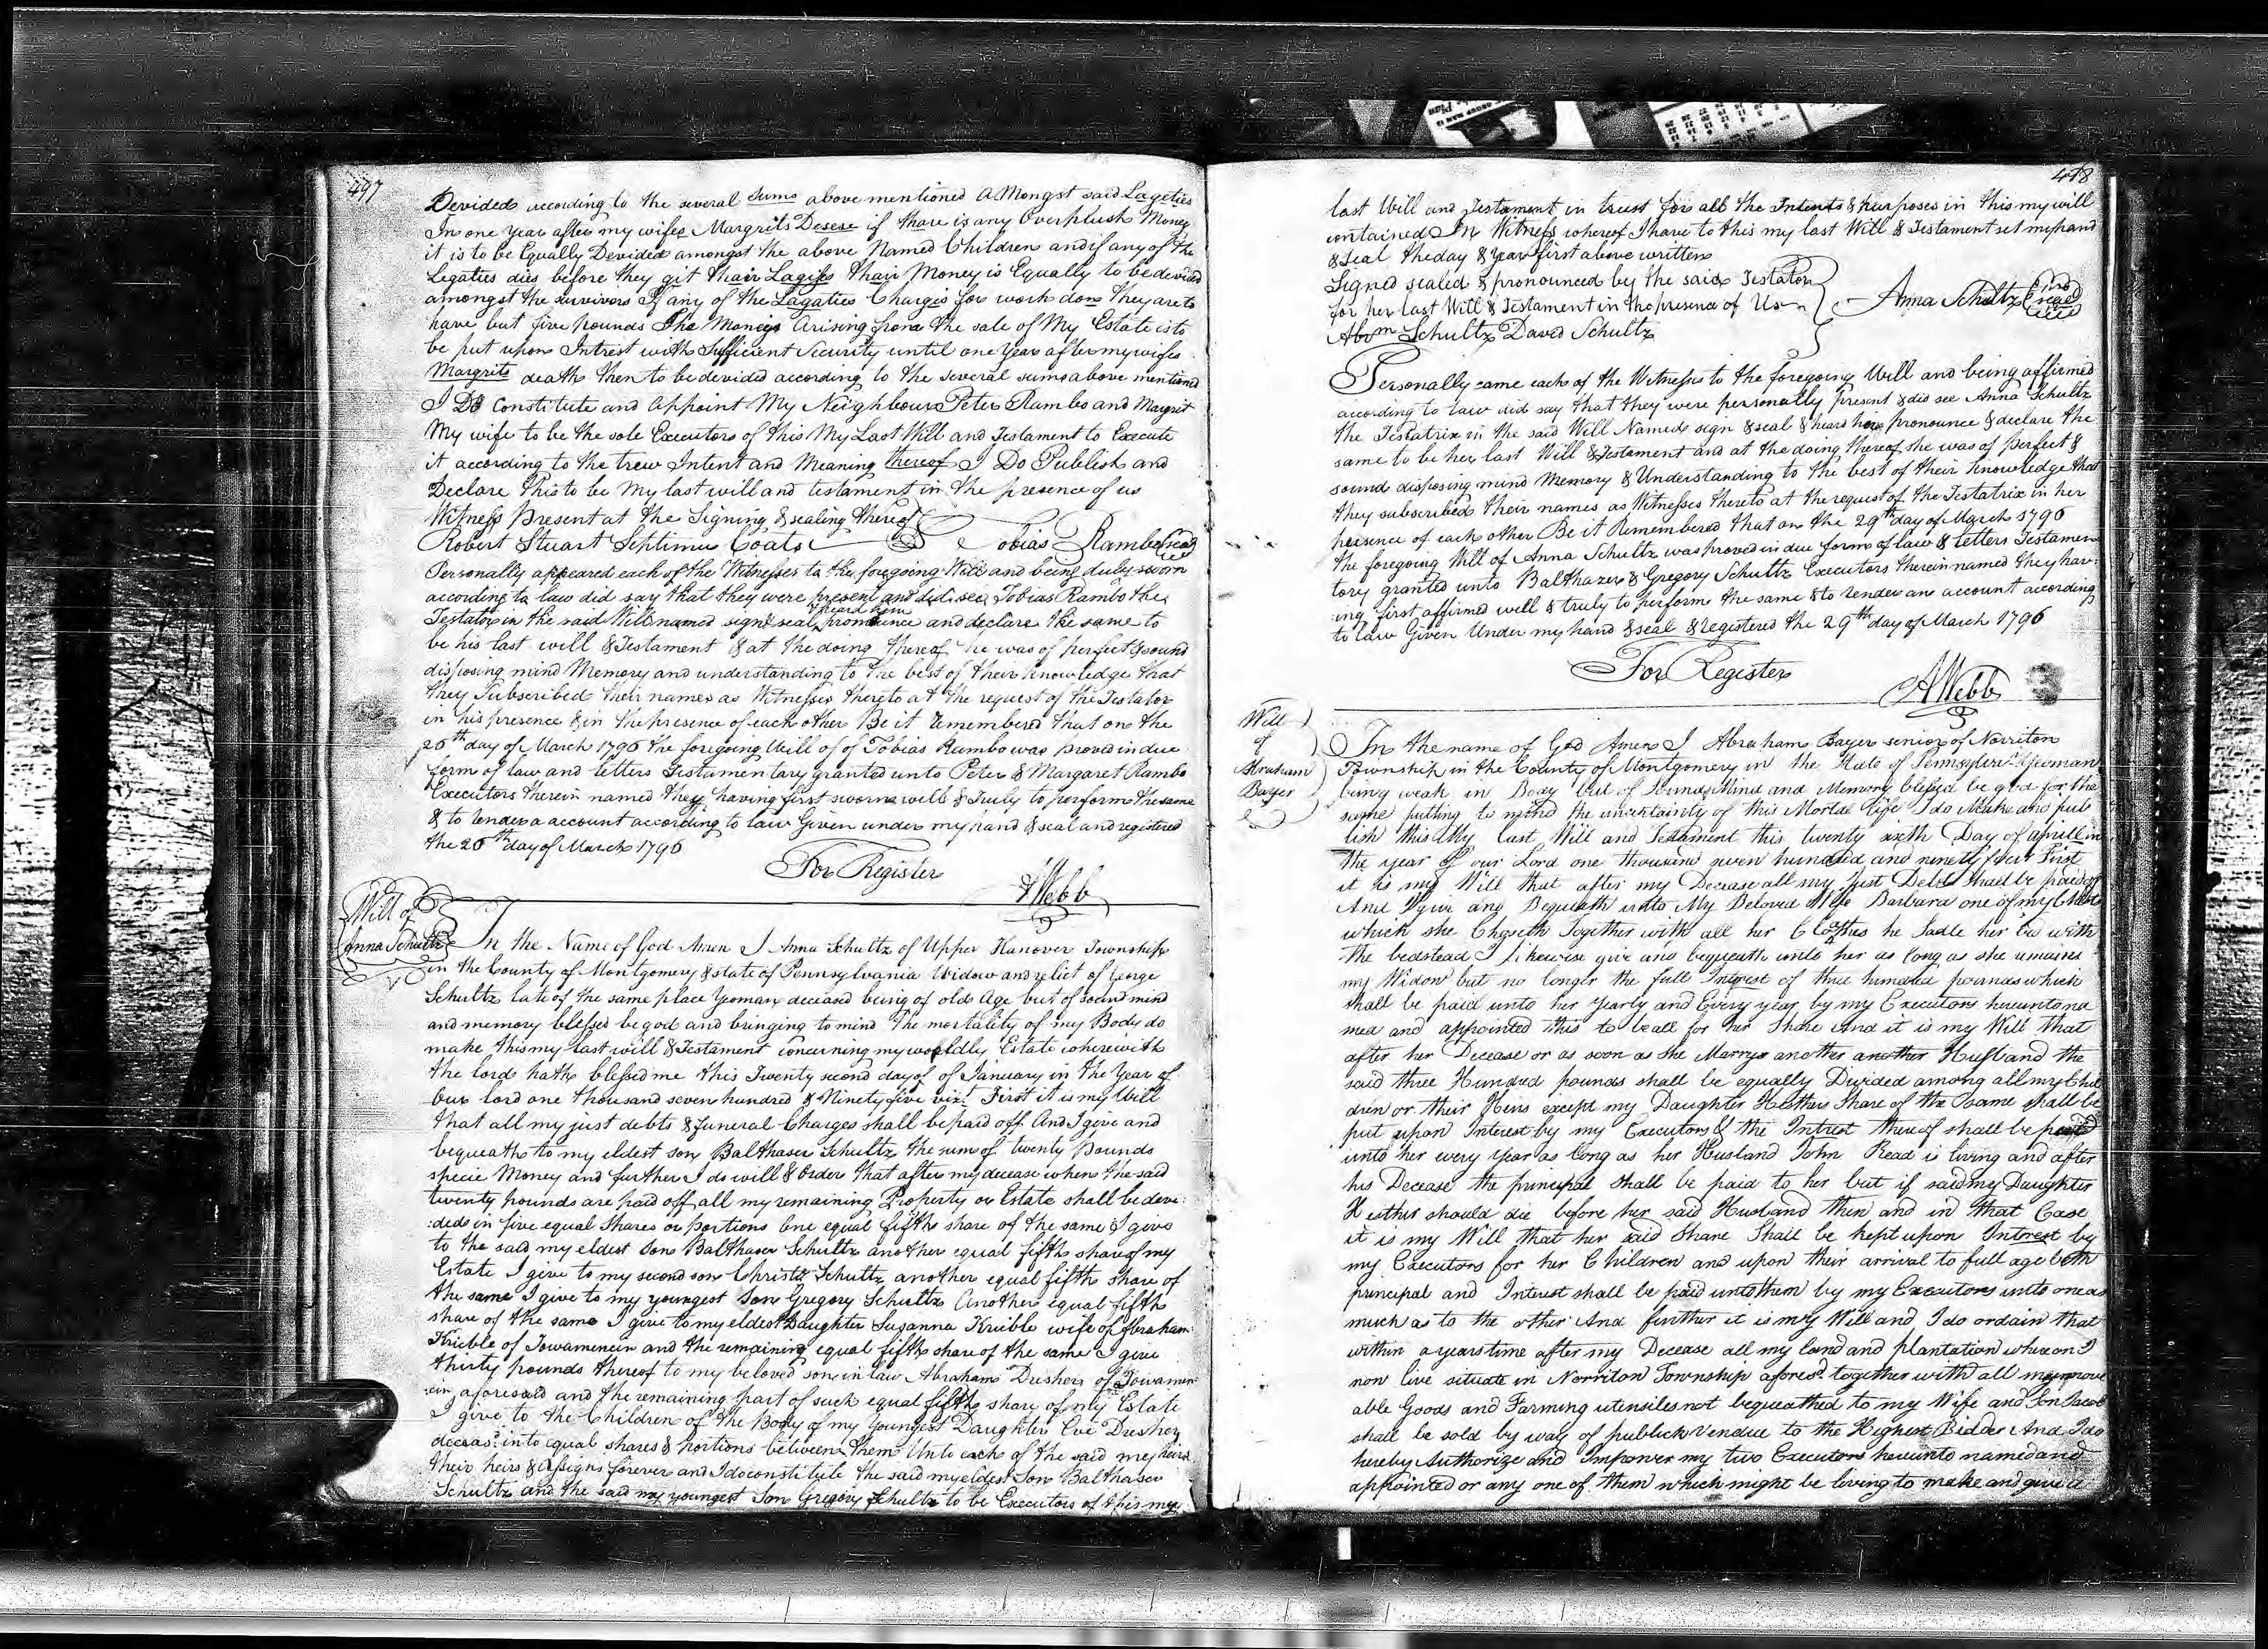 497
Devided according to the several sums above mentioned amongst said Lageties
In one Year after my wifes Margrits Desese if thare is any Overplush Money
it is to be Equally Devided amongst the above Named Children and if any of the
Legaties dies before they git thair Lagises thair Money is Equally to be devided
amongst the survivors If any of the Lagaties Charges for work don they are to
have but five pounds The Moneys Arising from the sale of My Estate is to
be put upon Intrest with Sufficient Security until one Year after my wifes
Margrits death then to be devided according to the several sums above mentioned
I Do Constitute and Appoint My Neighbour Peter Rambo and Margrit
My wife to be the sole Executors of this My Last Will and Testament to Execute
it according to the trew Intent and Meaning thereof I Do Publish and
Declare This to be My last will and testament in the presence of us
Witness Present at the Signing & sealing thereof
Robert Stuart Septimus Coats Tobias Rambo (seal)
Personally appeared each of the Witnesses to the foregoing Will and being duly sworn
according to law did say that they were present and did see Tobias Rambo the
Testator in the said Will named sign & seal & heard him pronounce and declare the same to
be his last will & Testament & at the doing thereof he was of perfect & sound
disposing mind Memory and understanding to the best of their knowledge that
they Subscribed their names as Witnesses thereto at the request of the Testator
in his presence & in the presence of each other Be it Remembered that on the
26th day of March 1796 the foregoing Will of of Tobias Rambo was proved in due
form of law and letters Testamentary granted unto Peter & Margaret Rambo
Executors therein named they having first sworn well & Truly to perform the same
& to render a account according to law Given under my hand & seal and registered
the 26th day of March 1796
For Register
AWebb
Will of
Anna Schultz
In the Name of God Amen I Anna Schultz of Upper Hanover Township
in the County of Montgomery & state of Pennsylvania Widow and relict of George
Schultz late of the same place Yeoman deceased being of old Age but of sound mind
and memory blessed be god and bringing to mind The mortality of my Body do
make this my last will & Testament concerning my worldly Estate wherewith
the lord hath blessed me this Twenty second day of of January in the Year of
our lord one thousand seven hundred & Ninety five viz: First it is my Will
that all my just debts & funeral Charges shall be paid off And I give and
bequeath to my eldest son Balthaser Schultz the sum of twenty Pounds
specie Money and further I do will & Order that after my decease when the said
twenty pounds are paid off all my remaining Property or Estate shall be deve:
:ded in five equal shares or portions One equal fifth share of the same I give
to the said my eldest son Balthaser Schultz another equal fifth share of my
Estate I give to my second son Christo Schultz another equal fifth share of
the same I give to my youngest Son Gregory Schultz Another equal fifth
share of the same I give to my eldest Daughter Susanna Krieble wife of Abraham
Krieble of Towamencin and the remaining equal fifth share of the same I give
thirty pounds thereof to my beloved son in law Abraham Dresher of Towamen
:cin aforesaid and the remaining part of such equal fifth share of my Estate
I give to the Children of the Body of my Youngest Daughter Eve Dresher
deceasd. into equal shares & portions between them Unto each of the said my heirs
their heirs & Assigns forever and I do constitute the said my eldest Son Balthaser
Schultz and the said my youngest Son Gregory Schultz to be Executors of this my
478
last Will and Testament in trust for all the Intents & purposes in this my will
contained In Witness whereof I have to this my last Will & Testament set my hand
& seal the day & year first above written
Signed sealed & pronounced by the said Testator
for her last Will & Testament in the presence of Us
Anna Schultz (seal)
Abm Schultz David Schultz
Personally came each of the Witnesses to the foregoing Will and being affirmed
according to law did say that they were personally present & did see Anna Schultz
the Testatrix in the said Will Named sign & seal & heard her pronounce & declare the
same to be her last Will & Testament and at the doing thereof she was of perfect &
sound disposing mind Memory & Understanding to the best of their knowledge that
they subscribed their names as Witnesses thereto at the request of the Testatrix in her
presence of each other Be it Remembered that on the 29th day of March 1796
the foregoing Will of Anna Schultz was proved in due form of law & letters Testamen
tory granted unto Balthazer & Gregory Schultz Executors therein named they hav:
:ing first affirmed well & truly to perform the same & to render an account according
to law Given Under my hand & seal & Registered the 29th day of March 1796
For Register
AWebb
Will
of
Abraham
Bayer
In the name of God Amen I Abraham Bayer senior of Norriton
Township in the County of Montgomery in the State of Pennsylvn. Yeoman
being weak in Body but of Sound Mind and Memory blessed be god for the
same putting to mind the uncertainty of this Mortal life I do Make and pub
lish this My last Will and Testament this twenty sixth Day of aprill in
the year of our Lord one thousand seven hundred and ninety four First
it is my Will that after my Decease all my Just Debts shall be paid of
And I give and Bequeath unto My Beloved Wife Barbara one of my Chest
which she Chaseth Together with all her Clothes he Sadle her bed with
the bedstead I likewise give and bequeath unto her as long as she remains
my Widow but no longer the full Interest of three hundred pounds which
shall be paid unto her yearly and Every year by my Executors hereunto na
med and appointed this to be all for her Share And it is my Will that
after her Decease or as soon as she Marrys another another Husband the
said three Hundred pounds shall be equally Divided among all my Chil
dren or their Heirs except my Daughter Hesthers Share of the Same shall be
put upon Interest by my Executors & the Intrest thereof shall be paid
unto her every year as long as her Husband John Read is living and after
his Decease the principal shall be paid to her but if said my Daughter
Hesther should die before her said Husband then and in that Case
it is my Will that her said Share Shall be kept upon Interest by
my Executors for her Children and upon their arrival to full age both
principal and Interest shall be paid unto them by my Executors unto one as
much as to the other And further it is my Will and I do ordain that
within a years time after my Decease all my land and plantation whereon I
now live situate in Norriton Township aforesd. together with all my move
able Goods and Farming utensiles not bequeathed to my Wife and Son Jacob
shall be sold by way of publick Vendue to the Highest Bidder And I do
hereby Authorize and Impower my two Executors hereunto named and
appointed or any one of them which might be living to make and give a